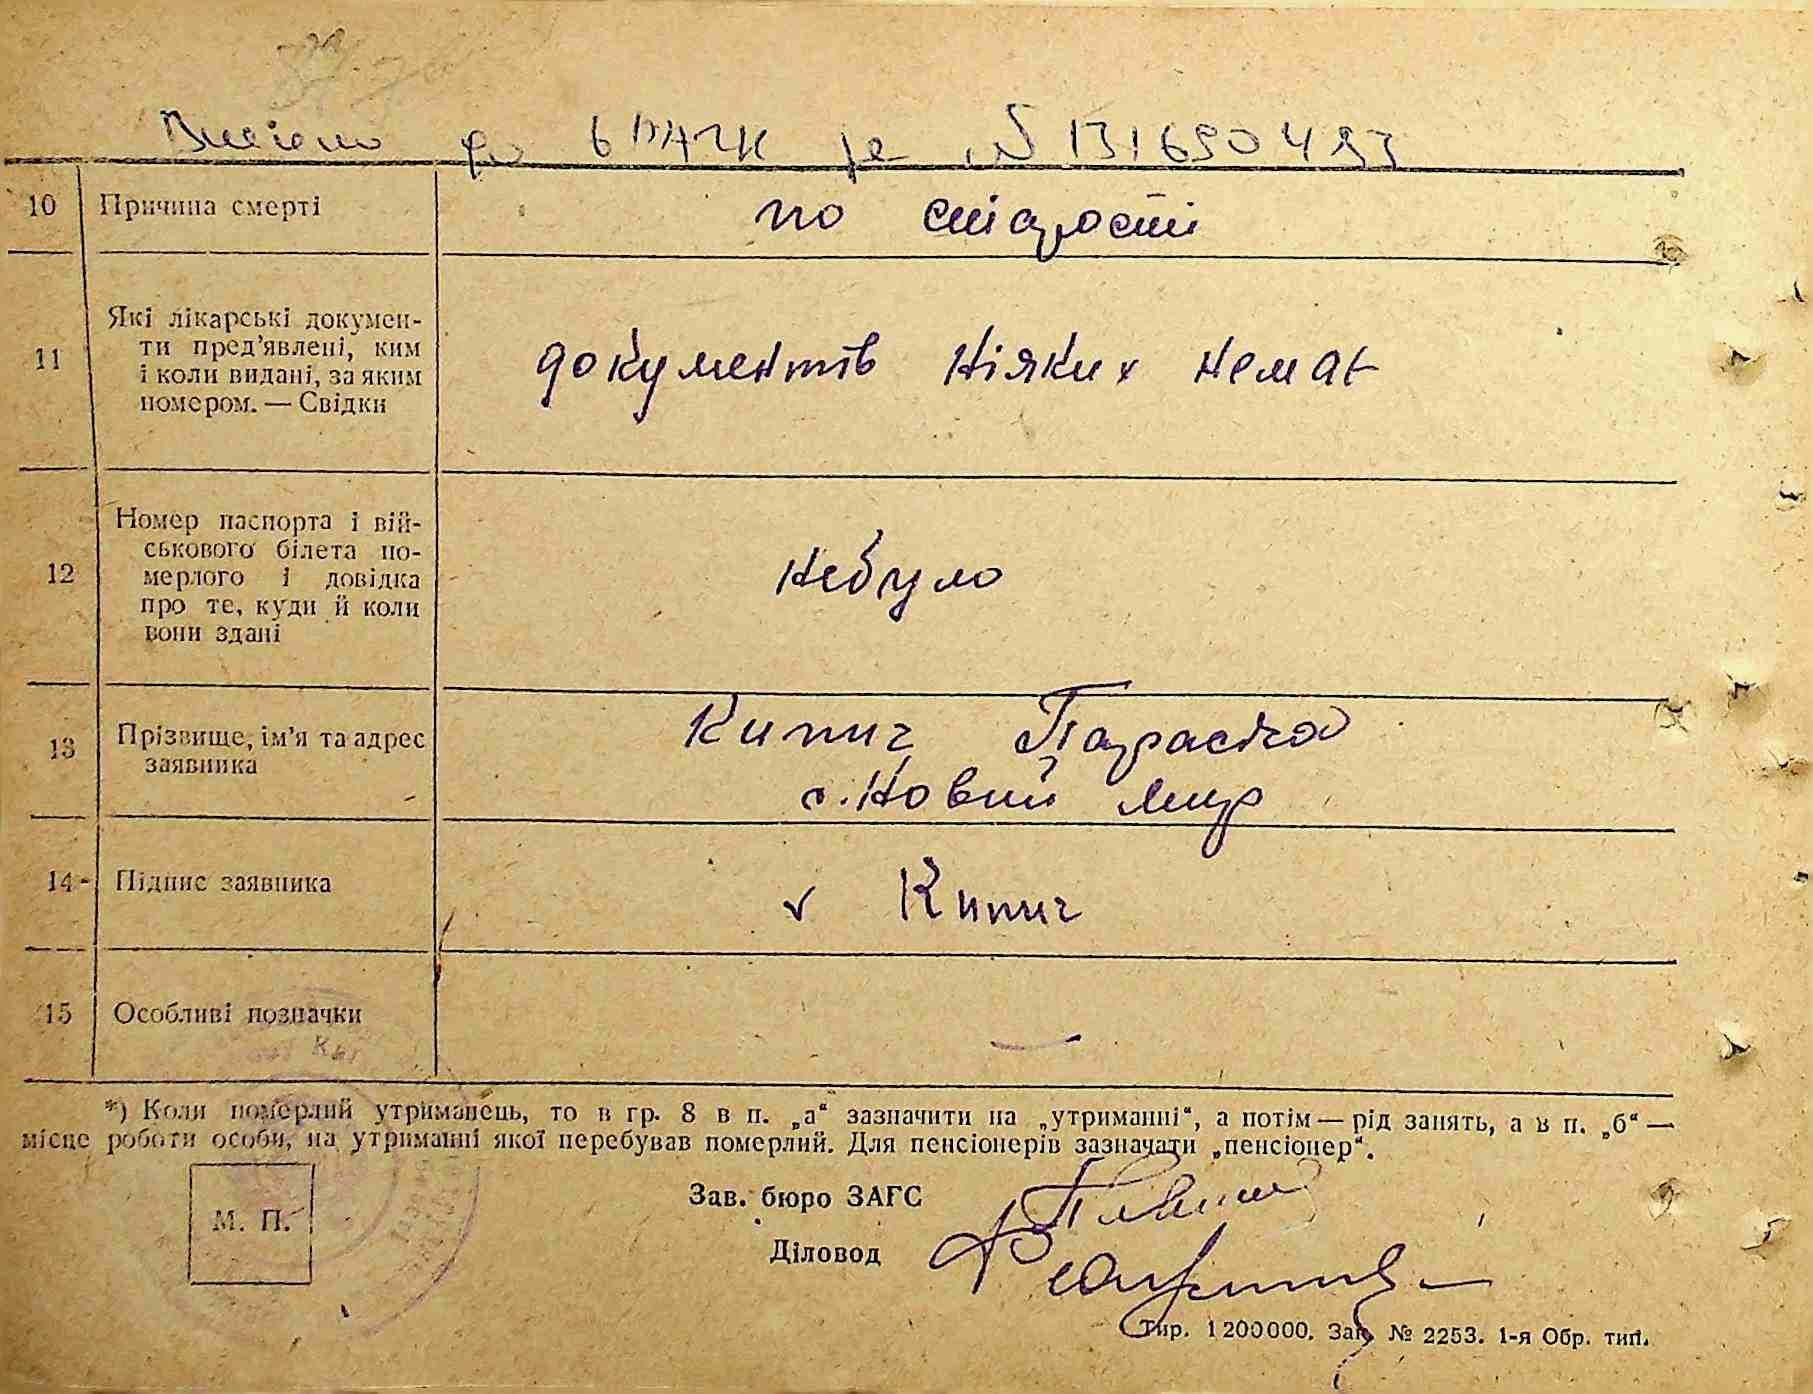 Внесено до ДРАЦС за № 131690493
10 Причина смерті по старості
11 Які лікарські докумен-
ти пред'явлені, ким
і коли видані, за яким
номером. — Свідки
документів ніяких немає
12 Номер паспорта і вій-
ськового білета по-
мерлого і довідка
про те, куди й коли
вони здані
небуло
13 Прізвище, ім'я та адрес
заявника
Кипич Параска
с. Новий Мир
14 Підпис заявника v Кипич
15 Особливі позначки —
*) Коли померлий утриманець, то в гр. 8 в п. „а“ зазначити на „утриманні“, а потім — рід занять, а в п. „б“ —
місце роботи особи, на утриманні якої перебував померлий. Для пенсіонерів зазначати „пенсіонер“.
Зав. бюро ЗАГС
М. П.
Діловод
Тир. 1200000. Зак. № 2253. 1-я Обр. тип.